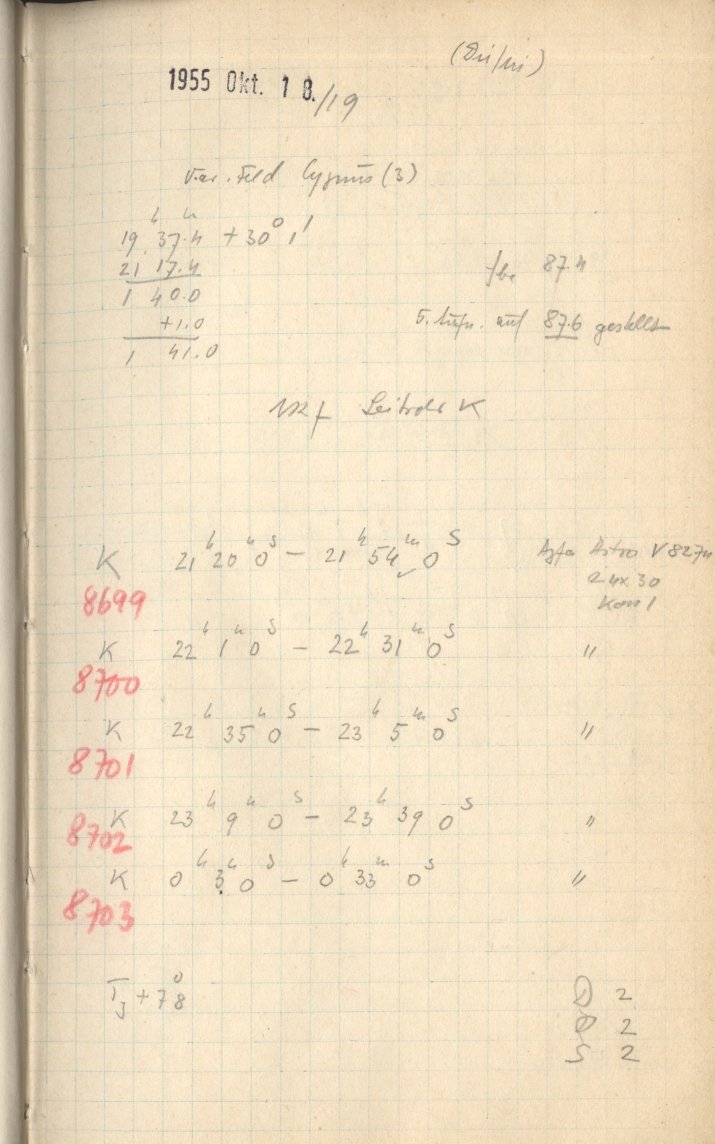 (Dü/ni)
1955 Okt. 18./19
Var. Feld Cygnus (3)
19 h 37.4 m + 30° 1'
21 17.4
1 40.0
+1.0
1 41.0
87.4
5. Aufn. auf 87.6 gestellt
Leitrohr K
K 21h 20m 0s – 21h 54m 0s Agfa Astro V 8274
24x30
Kass 1
8699
K 22h 1m 0s – 22h 31m 0s "
8700
K 22h 35m 0s – 23h 5m 0s "
8701
K 23h 9m 0s – 23h 39 0s "
8702
K 0h 3m 0s – 0h 33m 0s "
8703
TJ + 7°8
D 2
2
S 2